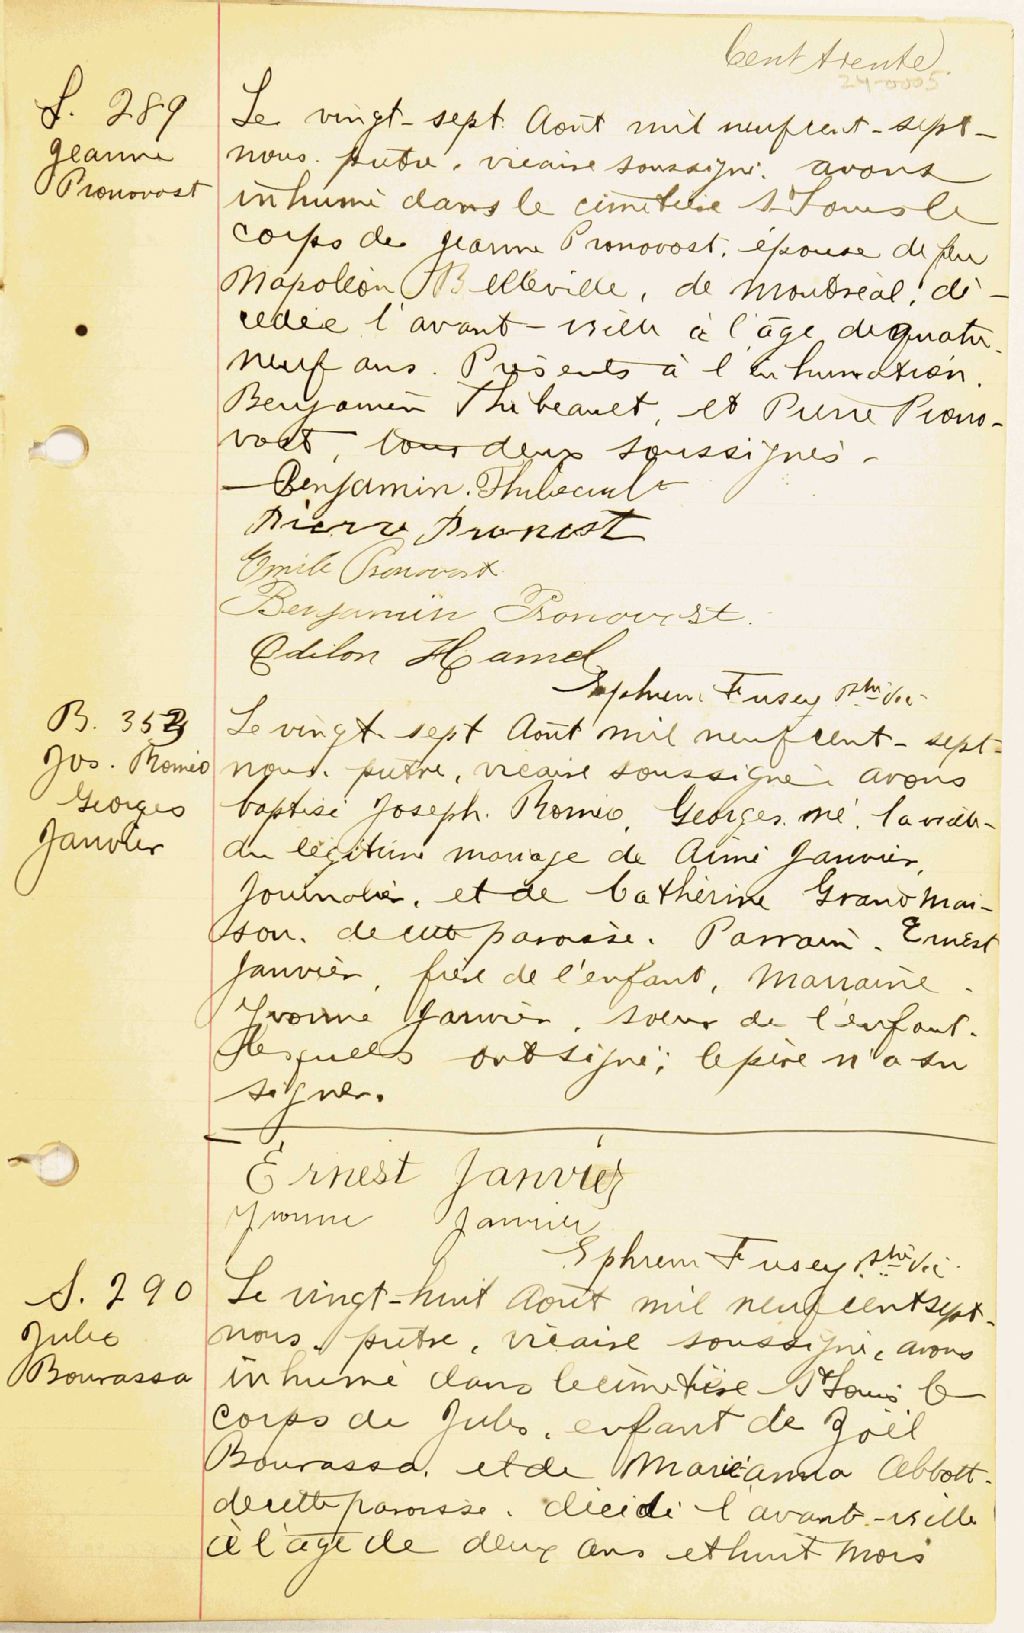 Cent trente
24-0005
S. 289
Jeanne
Pronovost
Le vingt-sept Août mil neuf cent-sept-
nous. prêtre, vicaire soussigné. avons
inhumé dans le cimetière St Louis le
corps de Jeanne Pronovost, épouse de feu
Napoléon Belleville, de Montréal, dé-
cédée l'avant-veille à l'âge de quatre-
neuf ans. Présents à l'inhumation.
Benjamin Thibeault, et Pierre Prono-
vost, tous deux soussignés-
Benjamin. Thibeault
Pierre Pronost
Emile Pronovost
Benjamin Pronovost.
Odilon Hamel
Ephrem Fusey ptre Vic
B. 353
Jos. Roméo
Georges
Janvier
Le vingt-sept Août mil neuf cent-sept-
nous. prêtre, vicaire soussigné. avons
baptisé Joseph. Roméo, Georges, né, la veille-
du légitime mariage de Aimé Janvier,
journalier, et de Cathérine Grandmai-
son. de cette paroisse. Parrain. Ernest
Janvier, frère de l'enfant, Marraine.
Yvonne Janvier, soeur de l'enfant.
lesquels ont signé; le père n'a su
signer.
Ernest Janvier
Yvonne Janvier
Ephrem Fusey ptre Vic.
S. 290
Jules
Bourassa
Le vingt-huit Août mil neuf cent sept-
nous. prêtre, vicaire soussigné, avons
inhumé dans le cimetière St Louis le
corps de Jules, enfant de Joël
Bourassa, et de Marieanna Abbott.
de cette paroisse. décédé l'avant-veille
à l'âge de deux ans et huit mois